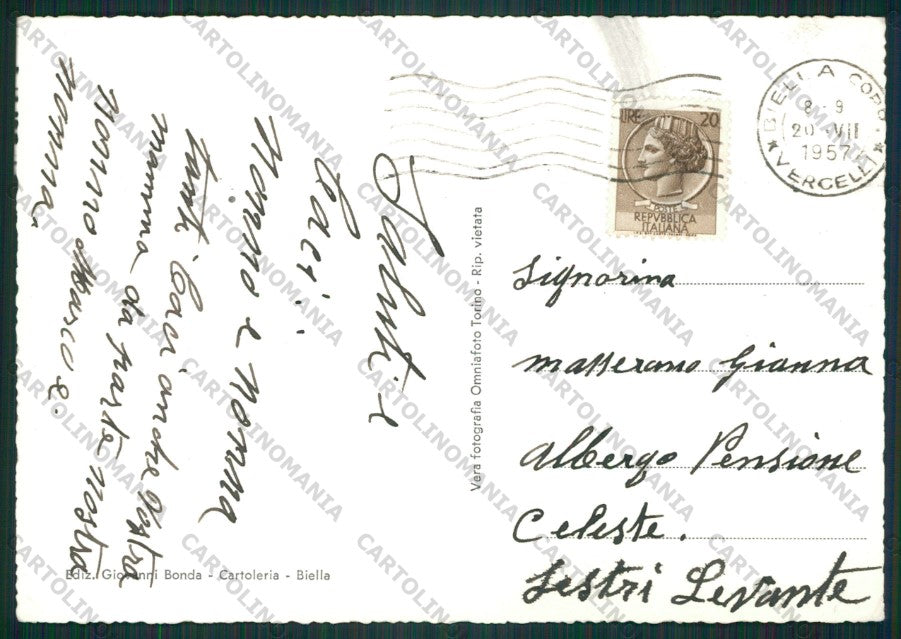 Saluti e
baci!!
Nonno e nonna
tanti baci anche Vostra
mamma da parte nostra
Nonno Marco e.
Nonna,
Ediz. Giovanni Bonda - Cartoleria - Biella
Vera fotografia Omniafoto Torino - Rip. vietata
LIRE 20
POSTE
REPVBBLICA
ITALIANA
BIELLA CORR.
8-9
20 VII
1957
* VERCELLI *
Signorina
Masserano Gianna
Albergo Pensione
Celeste.
Sestri Levante
CARTOLINOMANIA